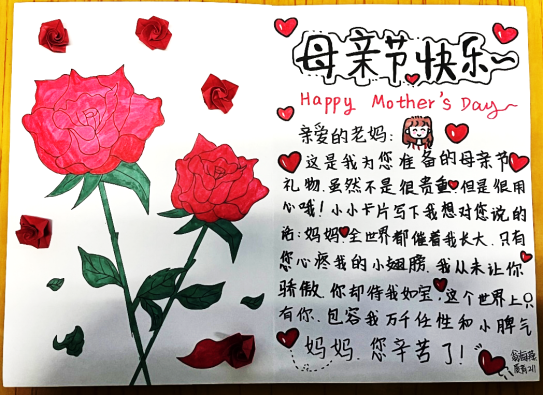 母亲节快乐~
Happy Mother's Day~
亲爱的老妈:
这是我为您准备的母亲节
礼物.虽然不是很贵重.但是很用
心哦!小小卡片写下我想对您说的
话:妈妈.全世界都催着我长大.只有
您心疼我的小翅膀.我从未让你
骄傲.你却待我如宝.这个世界上只
有你.包容我万千任性和小脾气
妈妈.您辛苦了!